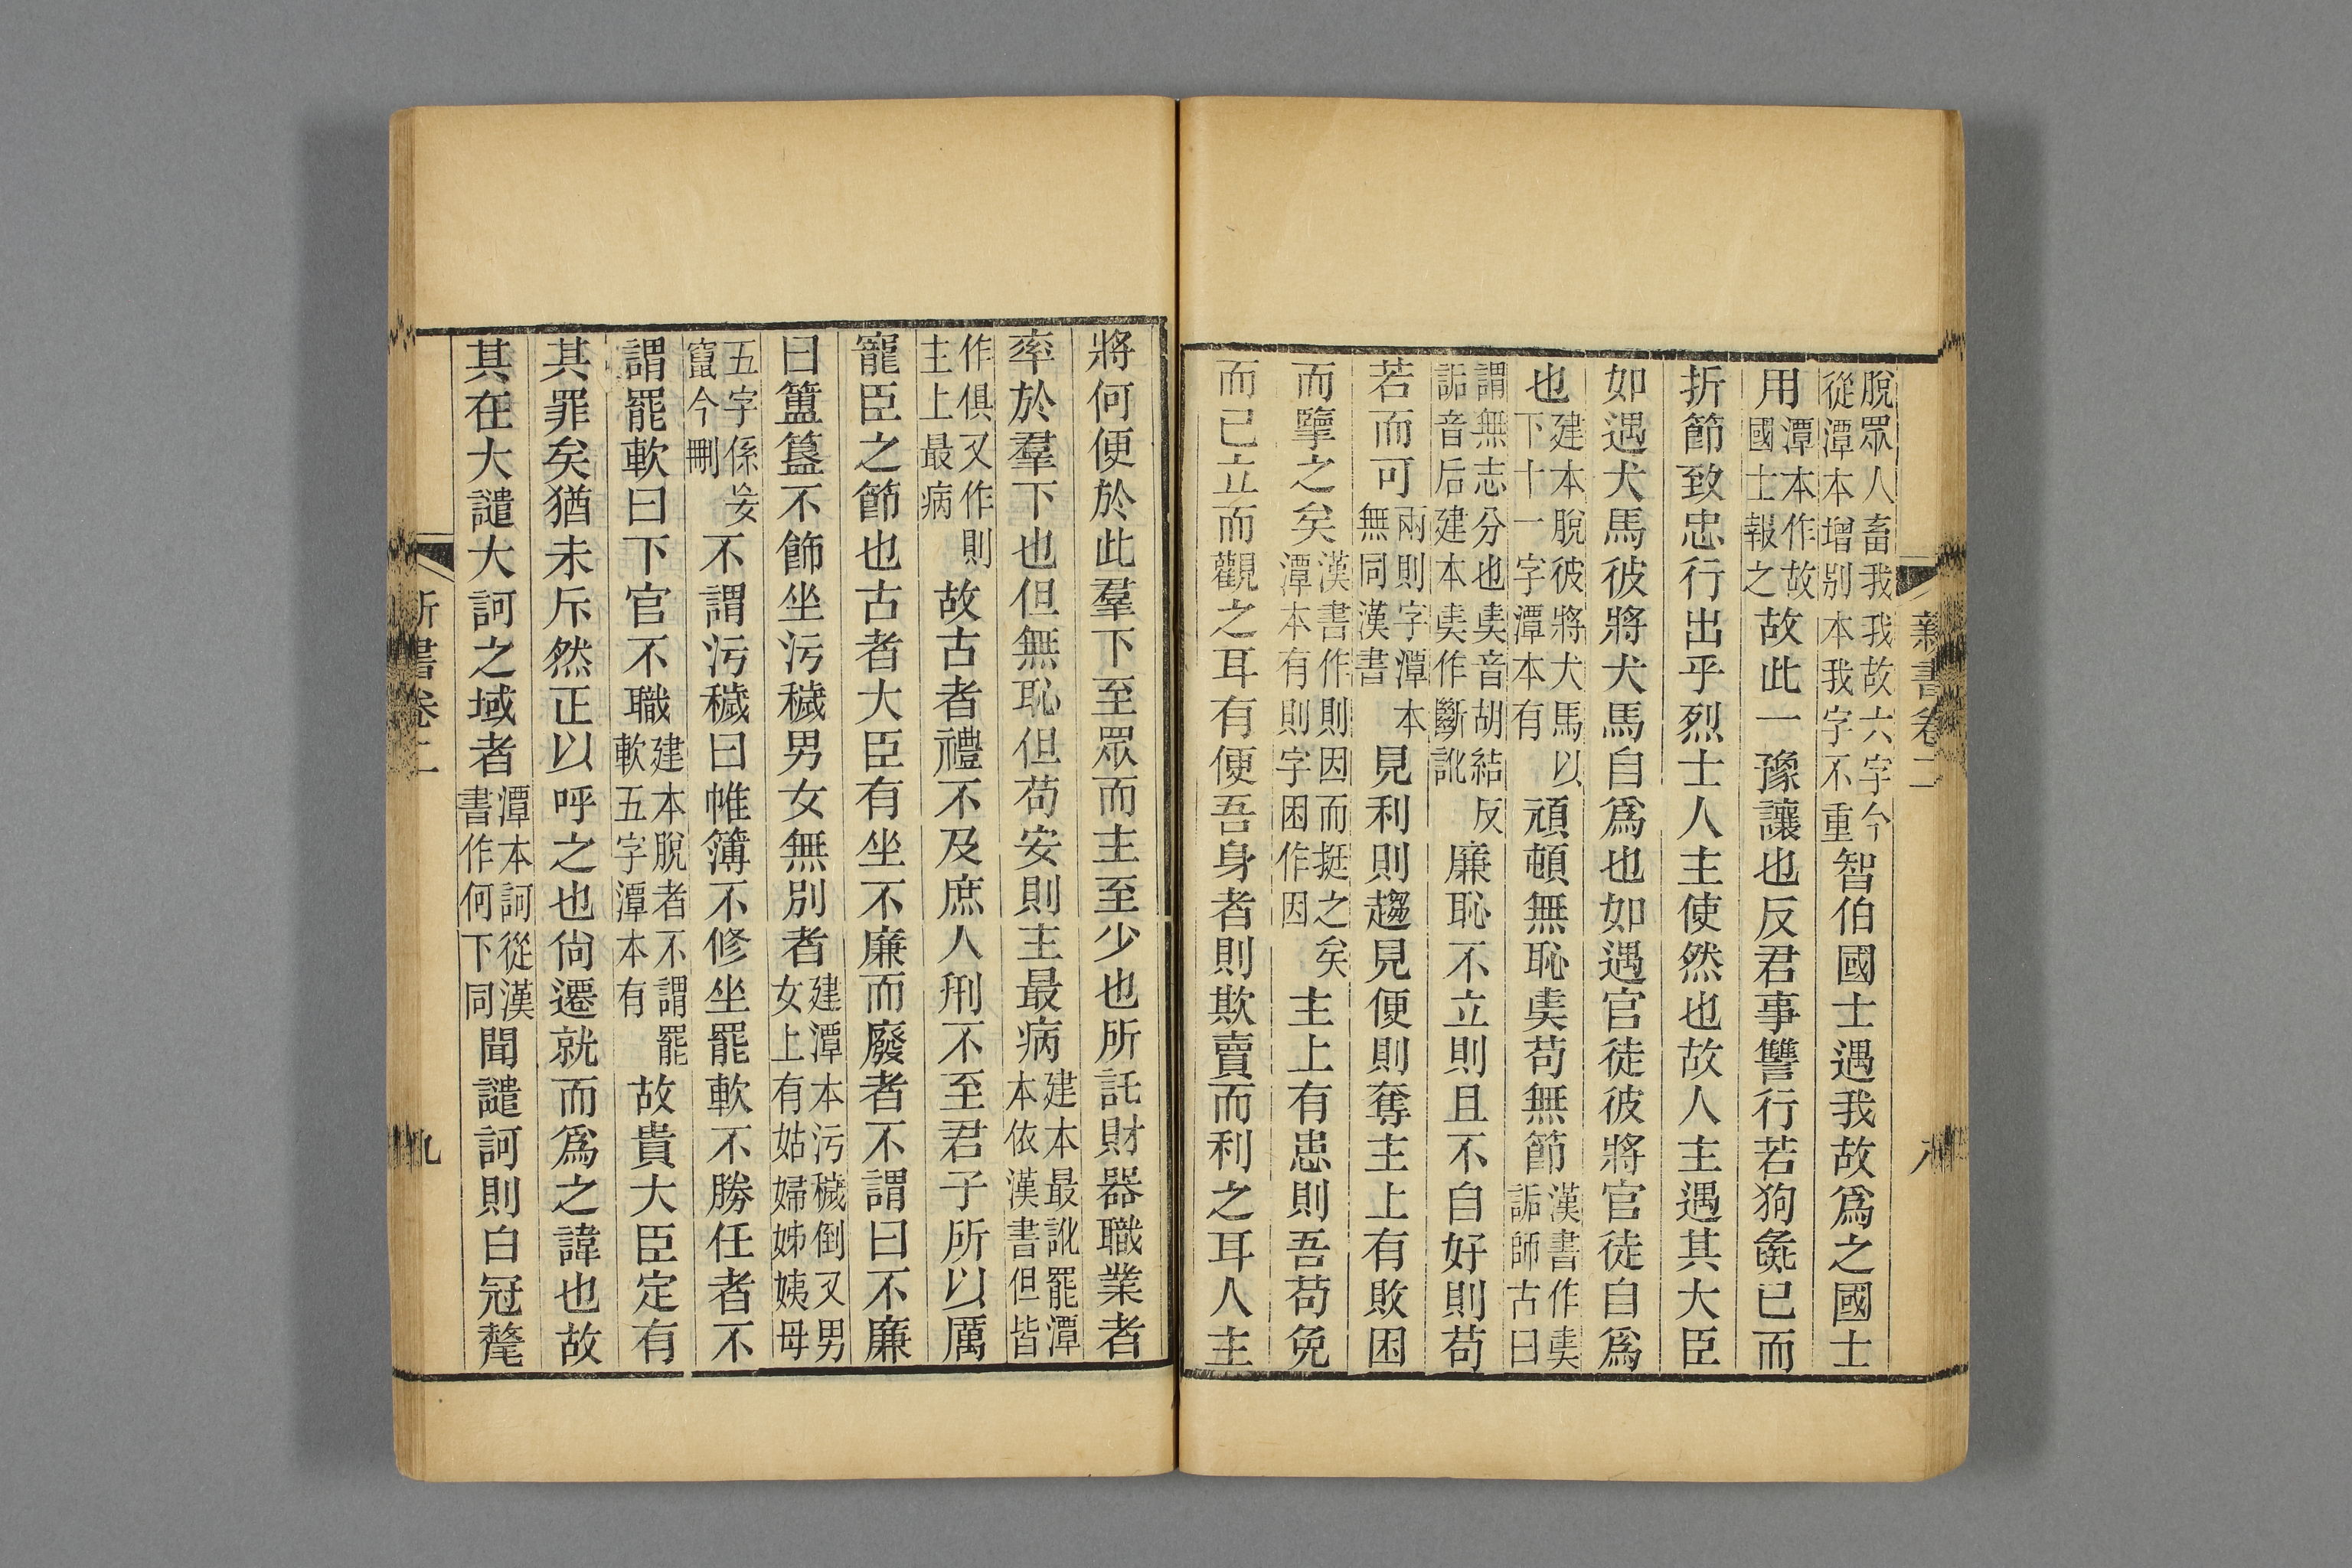 新書卷二 八
脫眾人畜我我故六字今從潭本增別本我字不重智伯國士遇我故爲之國士
用潭本作故國士報之故此一豫讓也反君事讐行若狗彘已而
折節致忠行出乎烈士人主使然也故人主遇其大臣
如遇犬馬彼將犬馬自爲也如遇官徒彼將官徒自爲
也建本脫彼將犬馬以下十一字潭本有頑頓無恥奊苟無節漢書作奊詬師古曰
謂無志分也奊音胡結反詬音后建本奊作斷訛廉恥不立則且不自好則苟
若而可兩則字潭本無同漢書見利則趨見便則奪主上有敗困
而擥之矣漢書作則因而挺之矣潭本有則字困作因主上有患則吾苟免
而已立而觀之耳有便吾身者則欺賣而利之耳人主
將何便於此羣下至眾而主至少也所託財器職業者
率於羣下也但無恥但苟安則主最病建本最訛罷潭本依漢書但皆
作俱又作則主上最病故古者禮不及庶人刑不至君子所以厲
寵臣之節也古者大臣有坐不廉而廢者不謂曰不廉
曰簠簋不飾坐污穢男女無別者建潭本污穢倒又男女上有姑婦姊姨母
五字係妄竄今刪不謂污穢曰帷簿不修坐罷軟不勝任者不
謂罷軟曰下官不職建本脫者不謂罷軟五字潭本有故貴大臣定有
其罪矣猶未斥然正以呼之也尙遷就而爲之諱也故
其在大譴大訶之域者潭本訶從漢書作何下同聞譴訶則白冠氂
新書卷二 九